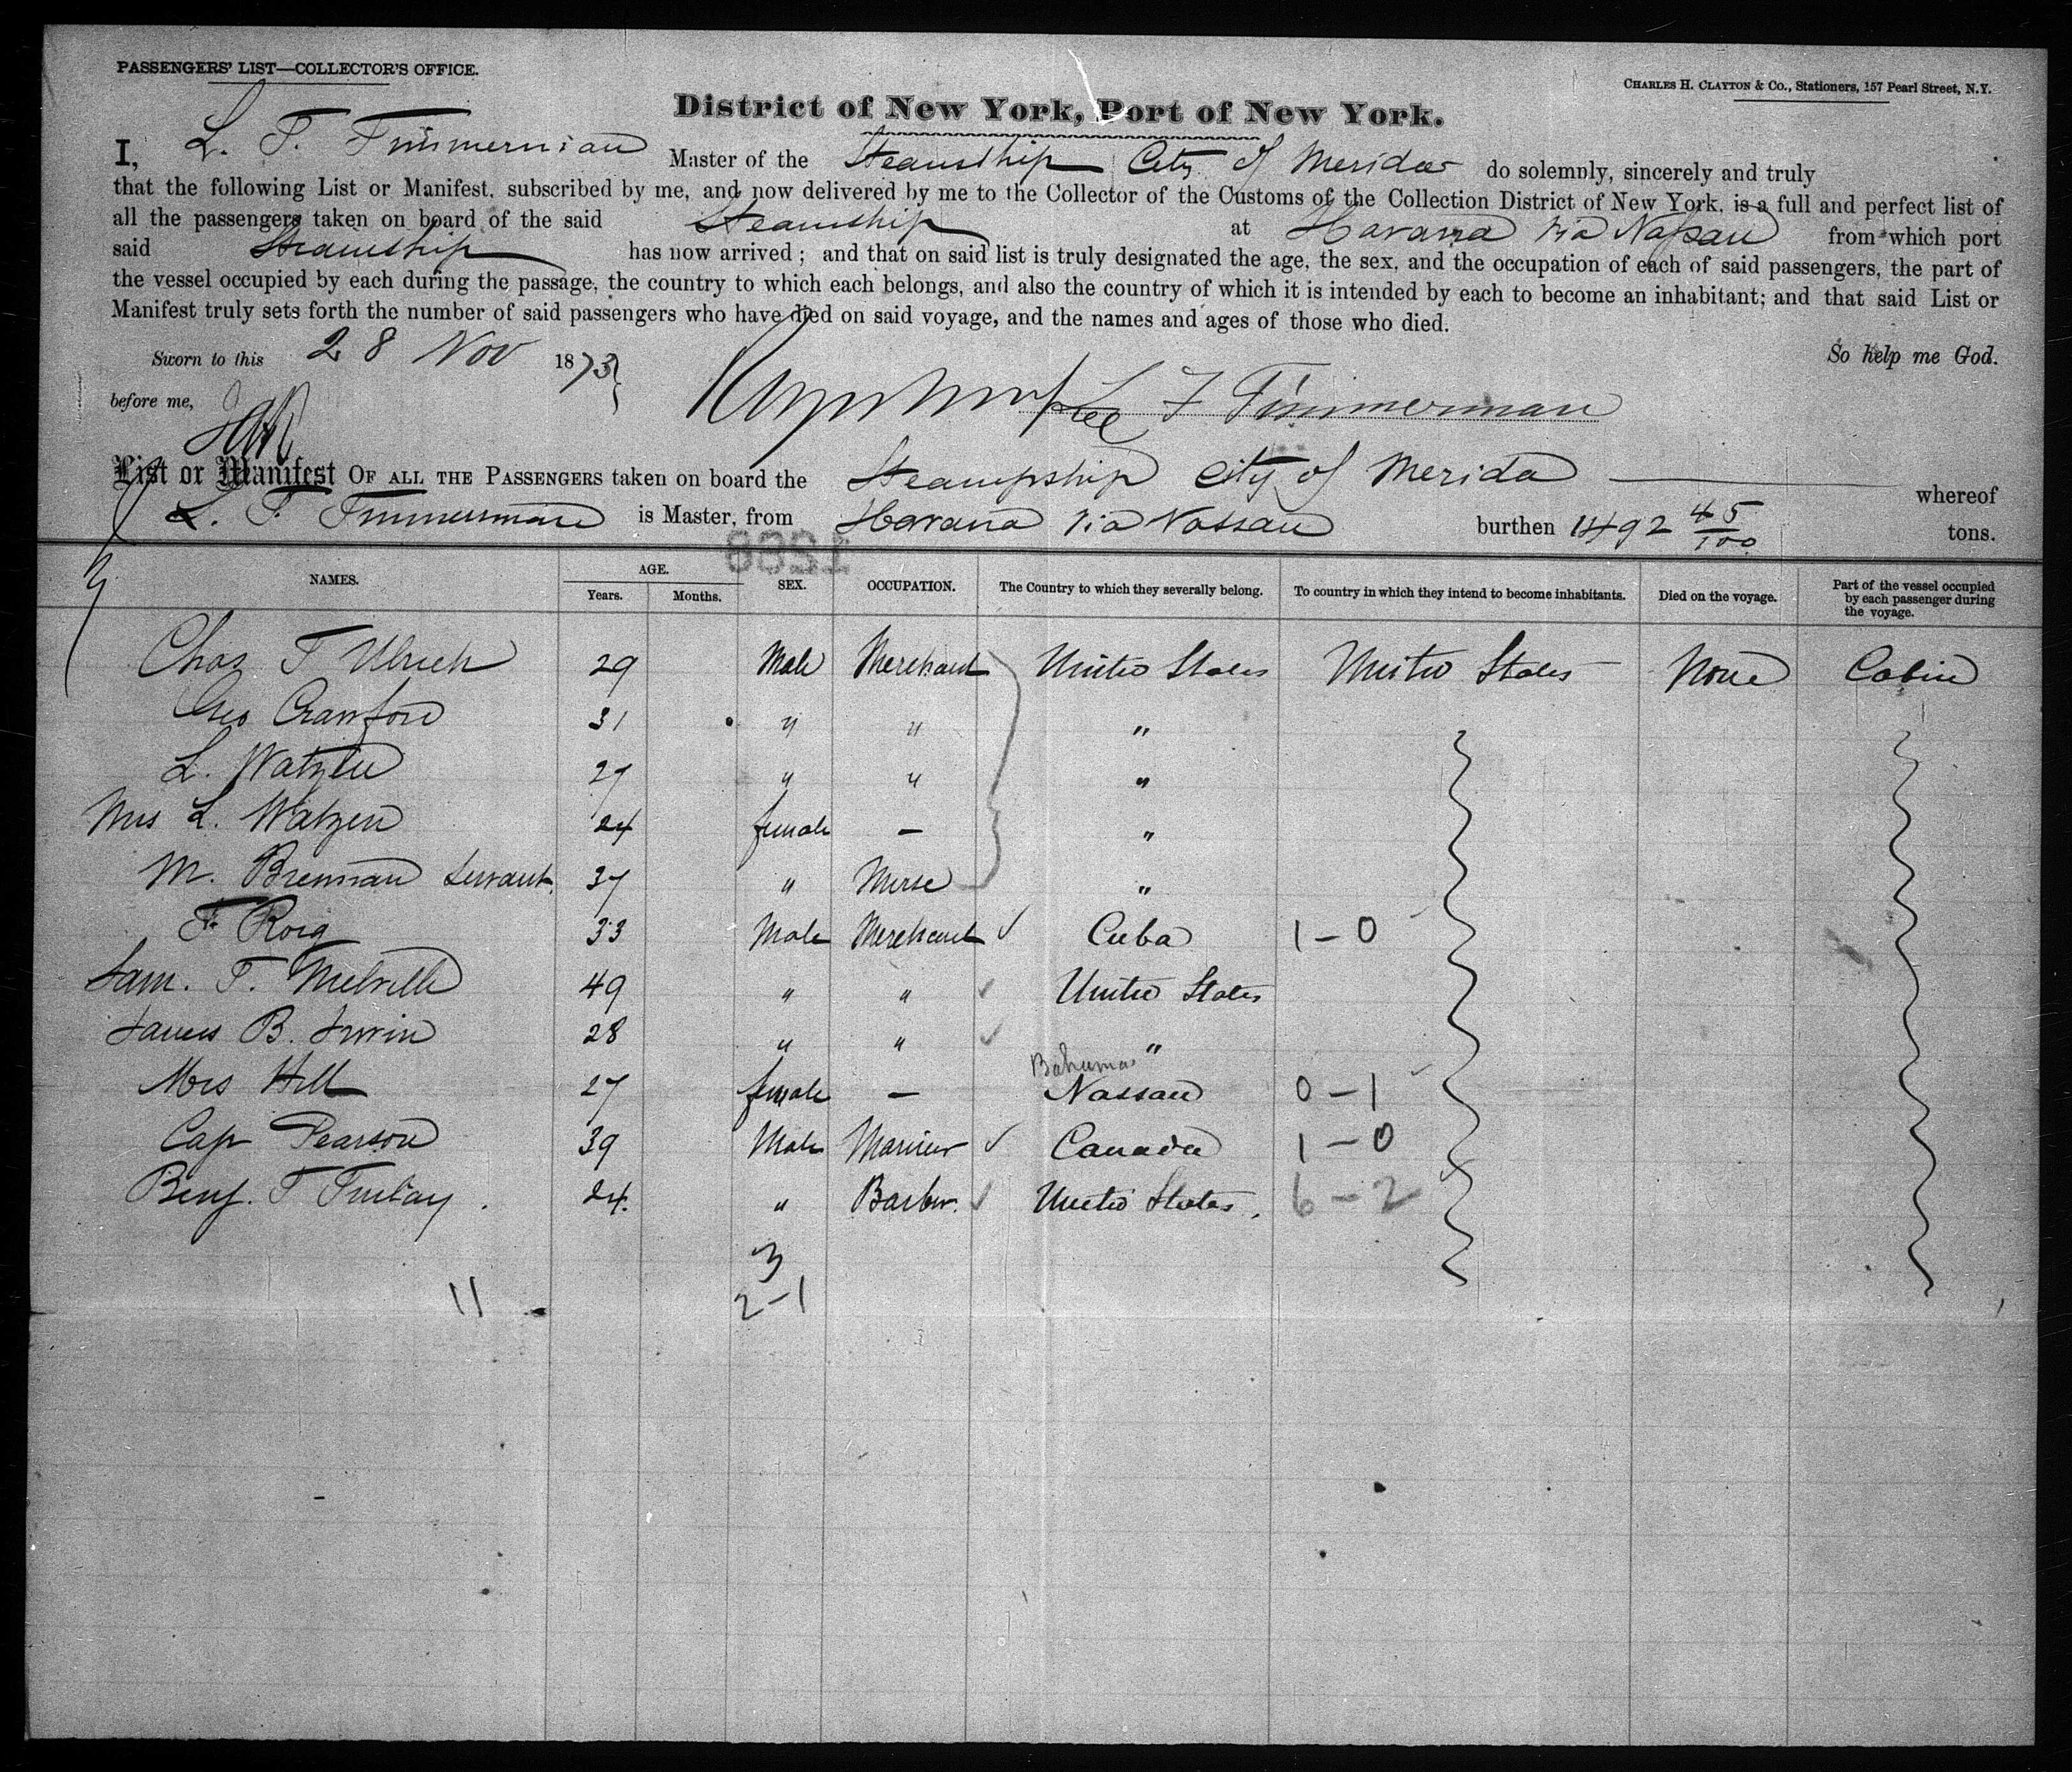 PASSENGERS' LIST—COLLECTOR'S OFFICE.
CHARLES H. CLAYTON & Co., Stationers, 157 Pearl Street, N.Y.
District of New York, Port of New York.
I, L. F. Timmerman Master of the Steamship City of Merida do solemnly, sincerely and truly
that the following List or Manifest, subscribed by me, and now delivered by me to the Collector of the Customs of the Collection District of New York, is a full and perfect list of
all the passengers taken on board of the said Steamship at Havana via Nassau from which port
said Steamship has now arrived; and that on said list is truly designated the age, the sex, and the occupation of each of said passengers, the part of
the vessel occupied by each during the passage, the country to which each belongs, and also the country of which it is intended by each to become an inhabitant; and that said List or
Manifest truly sets forth the number of said passengers who have died on said voyage, and the names and ages of those who died.
Sworn to this 28 Nov 1873 So help me God.
before me, L F Timmerman
List or Manifest OF ALL THE PASSENGERS taken on board the Steampship City of Merida whereof
L. F. Timmerman is Master, from Havana via Nassau burthen 1492 45/100 tons.
NAMES. AGE. Years. Months. SEX. OCCUPATION. The Country to which they severally belong. To country in which they intend to become inhabitants. Died on the voyage. Part of the vessel occupied by each passenger during the voyage.
Chas T Ulrich 29 Male Merchant United States United States None Cabin
Geo Crawford 31 " " "
L. Watzen 27 " " "
Mrs L. Watzen 24 female — "
M. Brennan Servant. 37 " Nurse "
F. Roig 33 Male Merchant ✓ Cuba 1-0
Sam. T. Melville 49 " " ✓ United States
James B. Irwin 28 " " ✓ "
Bahamas
Mrs Hill 27 female — Nassau 0-1
Cap Pearson 39 Male Mariner ✓ Canada 1-0
Benj. T 24. " Barber. ✓ United States. 6-2
3
11 2-1